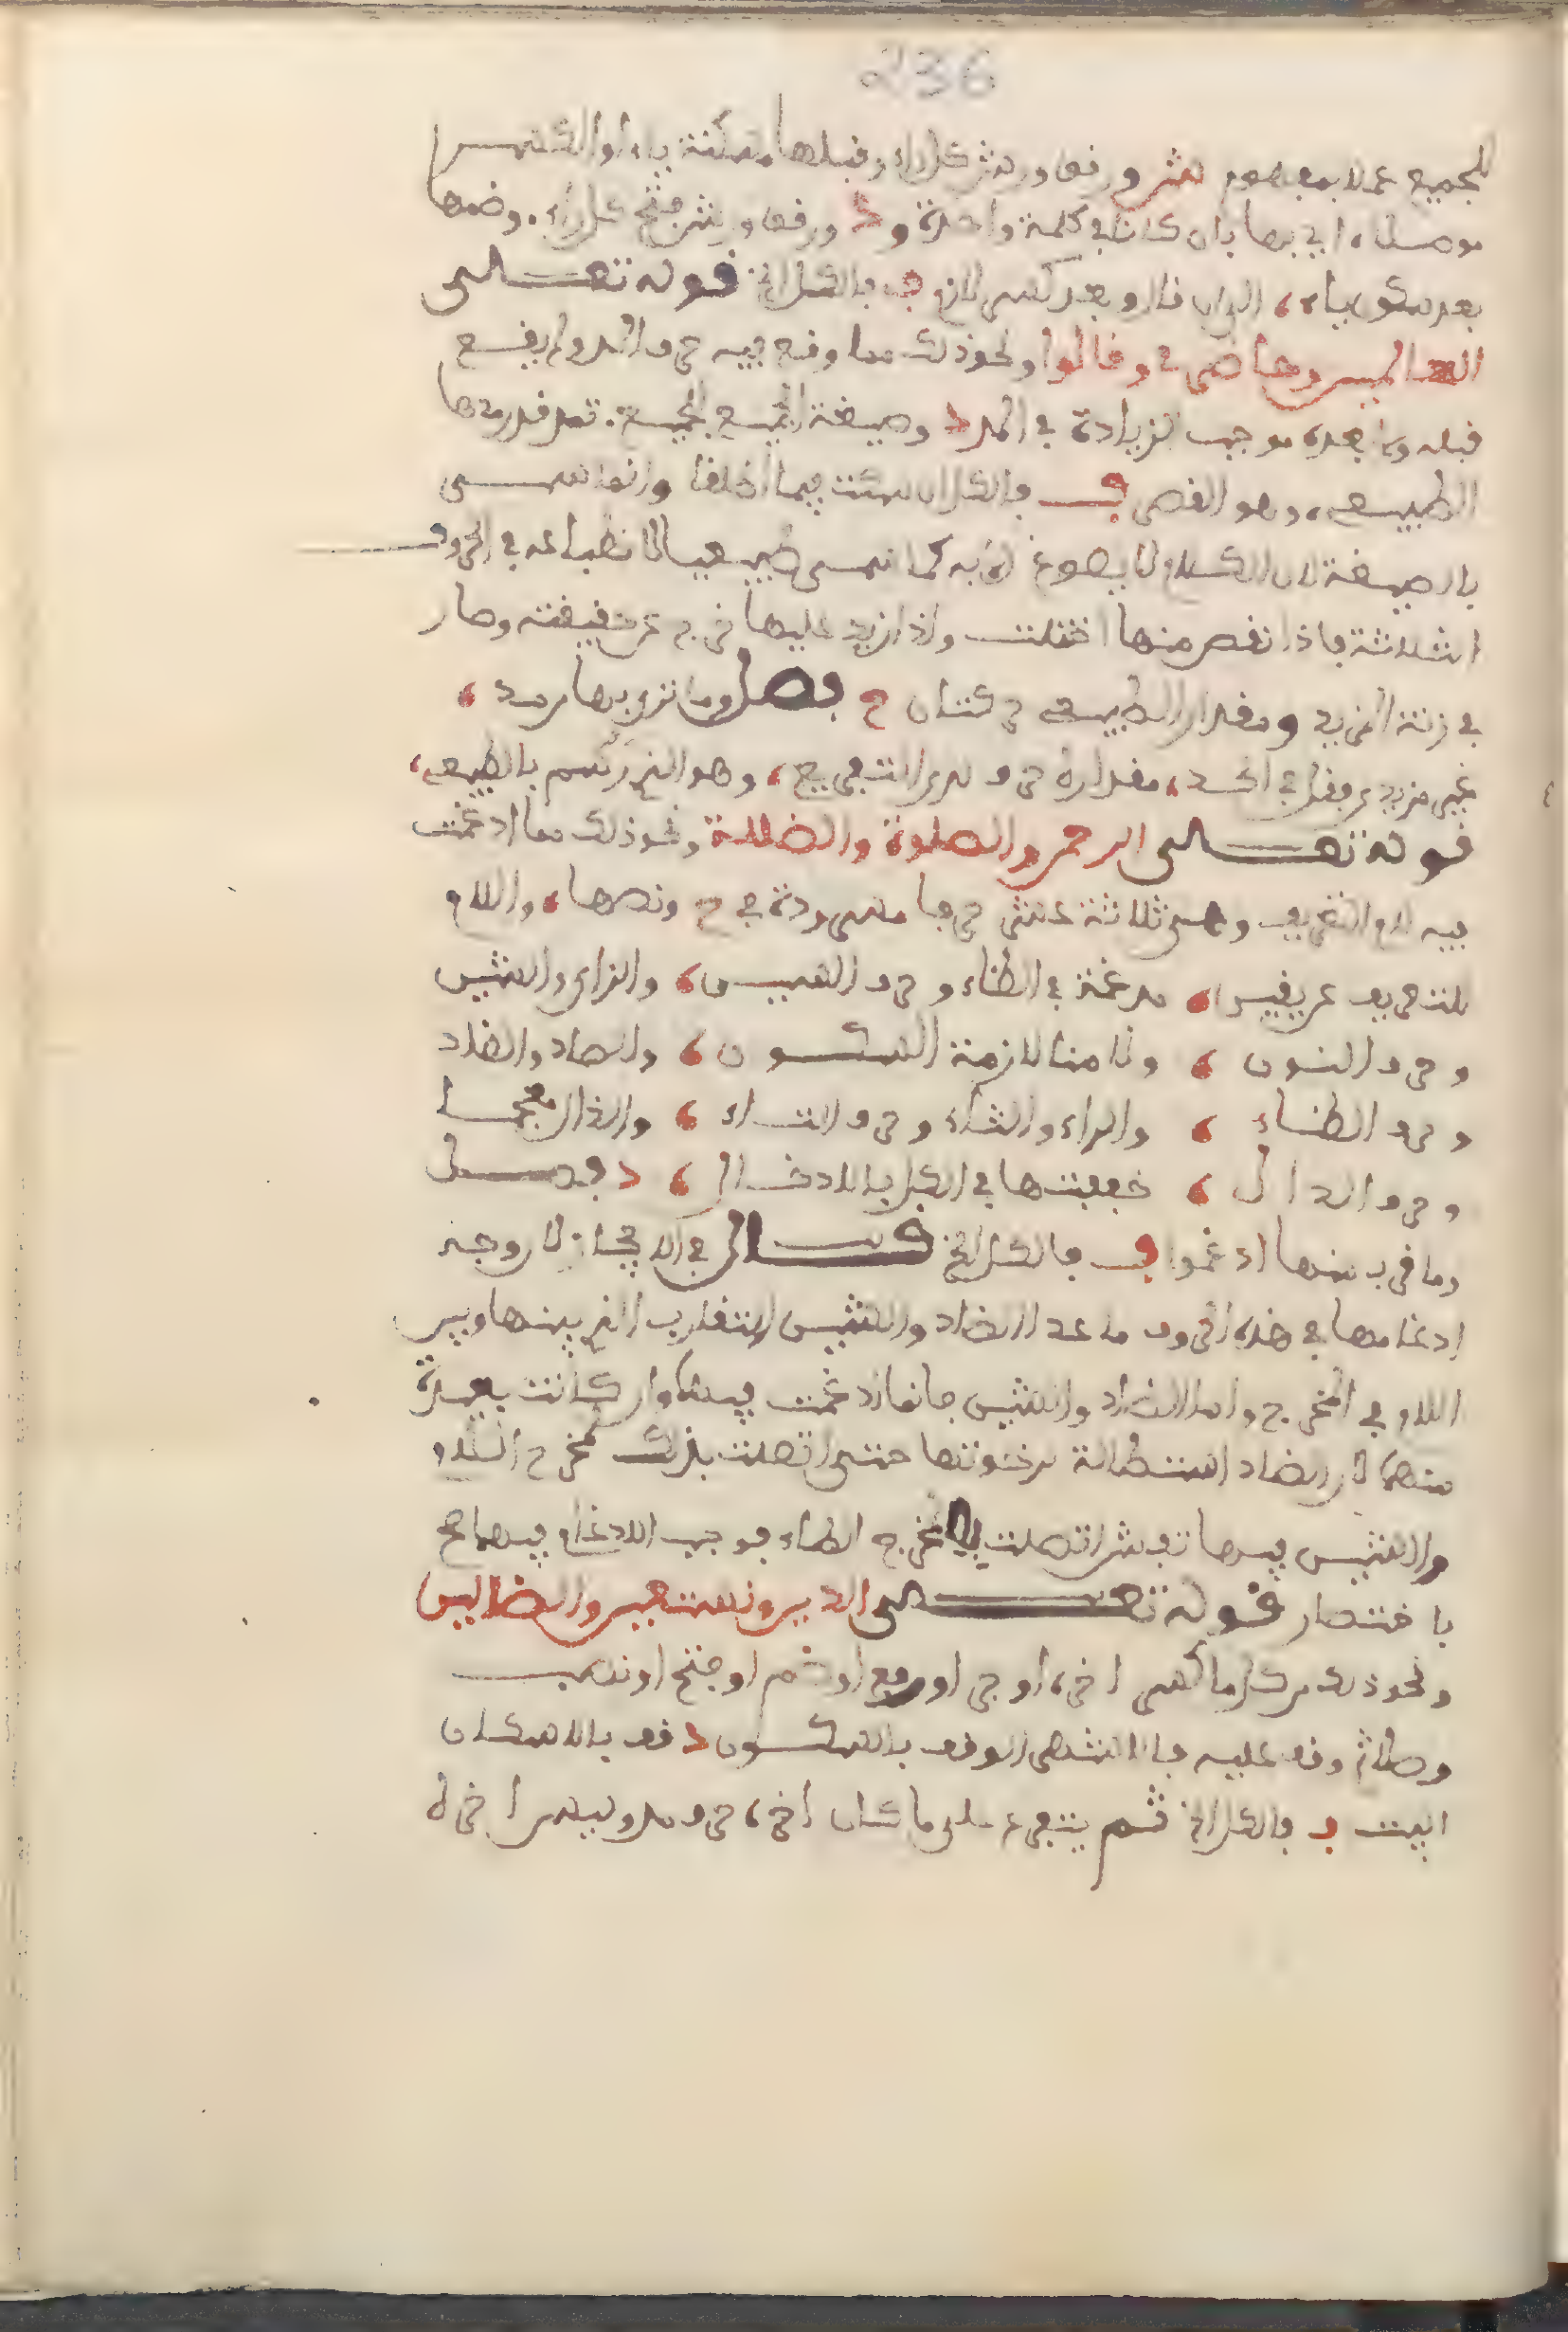 236
للجميع عملا بمفهوم هش ورقف ورش كل راء وقبلها مسكنة ياء او الكسر
موصلا، اي بها بان كانا في كلمة واحدة و د ورقف ورش فتح كل راء. وضمها
بعد سكون ياء، الى ان قال وبعد كسر لازم ڢ بالكل الخ قوله تعالى
العالمين وهاضى في وقالوا ونحو ذلك مما وقع فيه حرف المد ولم يقع
قبله ولا بعده موجب لزيادة في المد د وصيغة الجميع للجميع. تمد قدر مدها
الطبيعي، وهو القصر ڢ بالكل ان سكنت فيما اخلفا وانما سمى
بالصيغة لان الكلام لا يصوغ الا به كما سمى طبيعيا لانطباعه في الحروف
الثلاثة فاذا نقص منها اختلت واذا زيد عليها خرج عن حقيقته وصار
في زنة المزيد ومقدار الطبيعي حركتان ح بصل وما تزي بها من مد،
غير مزيد عن وقفل في الحد، مقداره حرف لدى التجريح، وهو الذي رسم بالطبيعي،
قوله تعالى الرحمن والصلوة والضللة ونحو ذلك مما ادغمت
فيه لام التعريف وهي ثلاثة عشر حرفا مسرودة في ح ونصها، واللام
للتعريف عن يقين، مدغمة في الظاء وحرف السين، والزاي والشين
وحرف النون، ولا منا لازمة السكون، والصاد والضاد
وحرف الطاء، والراء والثاء وحرف التاء، والذال معجما
وحرف الدال، فحقها في الكل بالادخال، د فصل
وما قرب منها ادغموا ڢ بالكل الخ قال في الايجاز لا وجه
ادغامها في هذه الحروف ما عدا الضاد والشين للتقارب الذي بينها وبين
اللام في المخرج واما الضاد والشين فانما ادغمت فيهما وان كانت بعيدة
منهما لان الضاد استطالة لرخوتها حتى اتصلت بذلك لمخرج اللام
والشين فيها تفش اتصلت بمخرج الطاء فوجب الادغام فيهما صح
باختصار قوله تعالى الدين ونستعين والضالين
ونحو ذلك من كل ما كسر اخره او جر او رفع او ضم او فتح او نصب
وصلا ثم وقف عليه بالاشهر الوقف بالسكون د قف بالاسكان
البيت د بالكل الخ ثم يتفرع على ما كان اخره حرف مد ولين اخر له